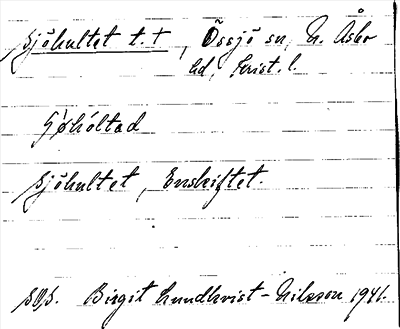 Sjöhultet t.t, Össjö sn, N. Åsbo
hd, Krist. l.
Sjöhultet, Enskiftet.
Birgit Lundkvist-Nilsson 1941.